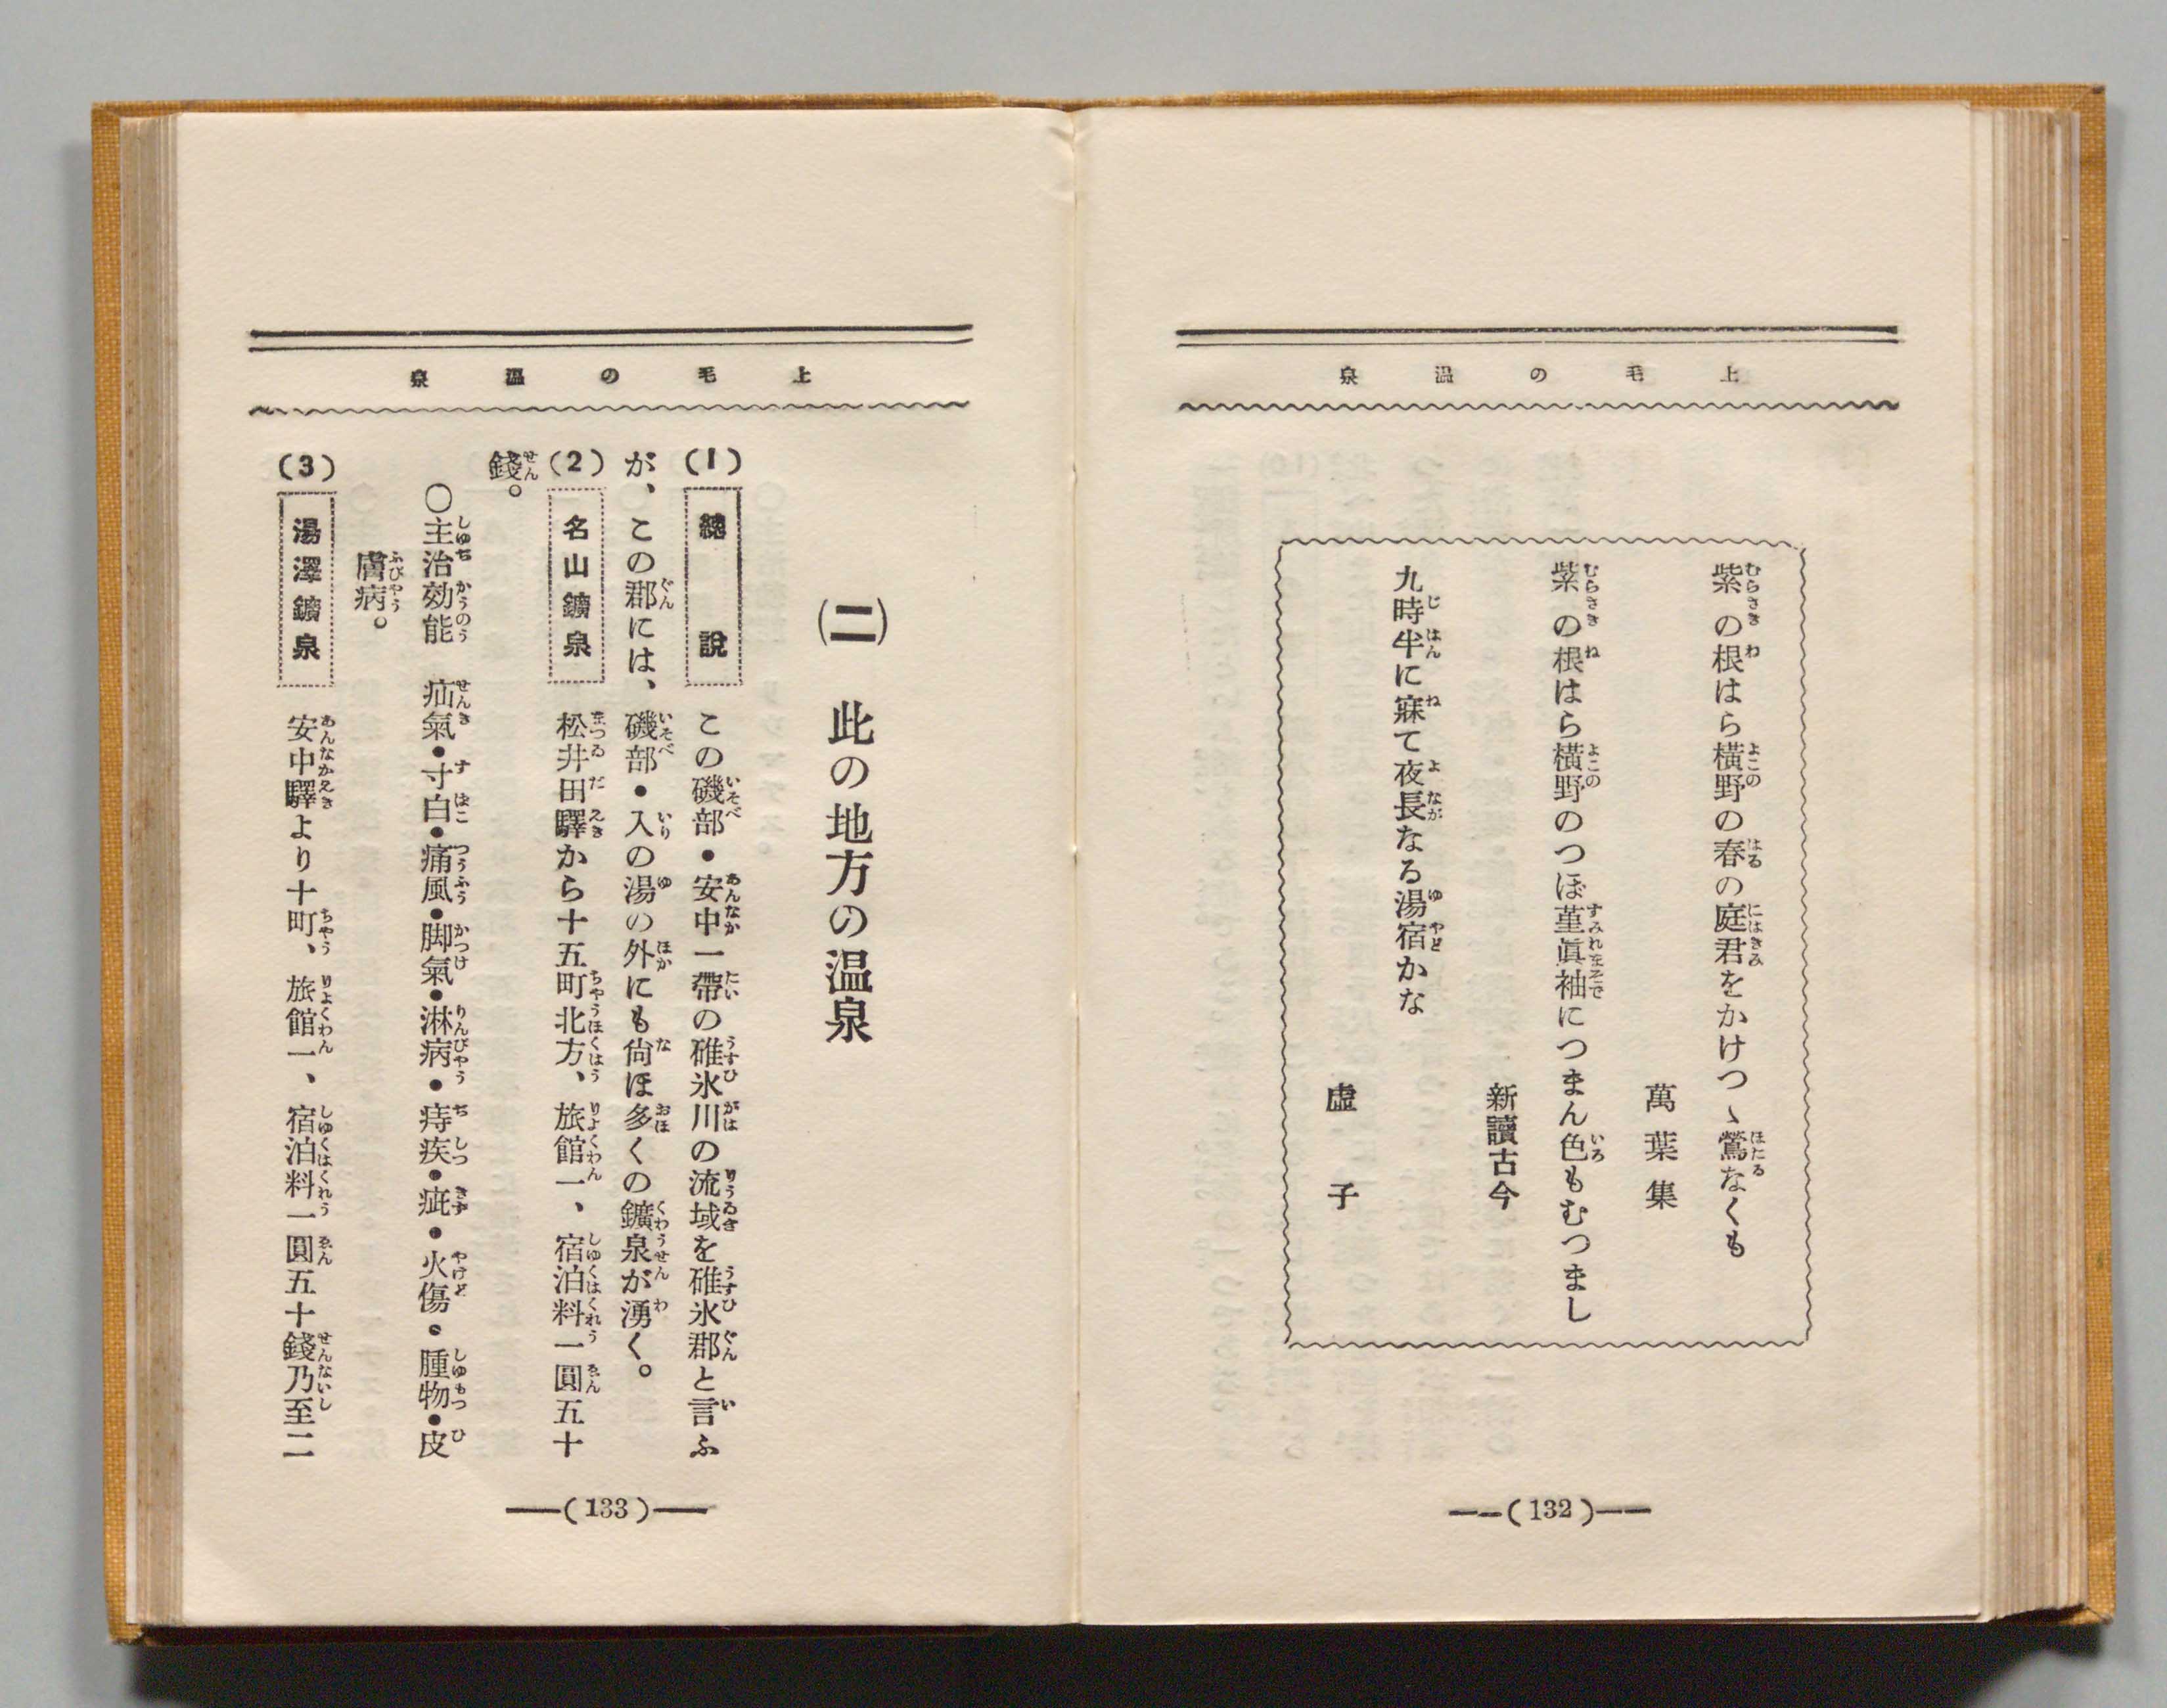 上毛の温泉
紫の根はら横野の春の庭君をかけつゝ鶯なくも
萬葉集
紫の根はら横野のつぼ菫眞袖につまん色もむつまし
新讀古今
九時半に寐て夜長なる湯宿かな
虛子
(132)
上毛の温泉
(二) 此の地方の温泉
(1) 總說 この磯部・安中一帶の碓氷川の流域を碓氷郡と言ふ
が、この郡には、磯部・入の湯の外にも尙ほ多くの鑛泉が湧く。
(2) 名山鑛泉 松井田驛から十五町北方、旅館一、宿泊料一圓五十
錢。
○主治効能 疝氣・寸白・痛風・脚氣・淋病・痔疾・疵・火傷・腫物・皮
膚病。
(3) 湯澤鑛泉 安中驛より十町、旅館一、宿泊料一圓五十錢乃至二
(133)